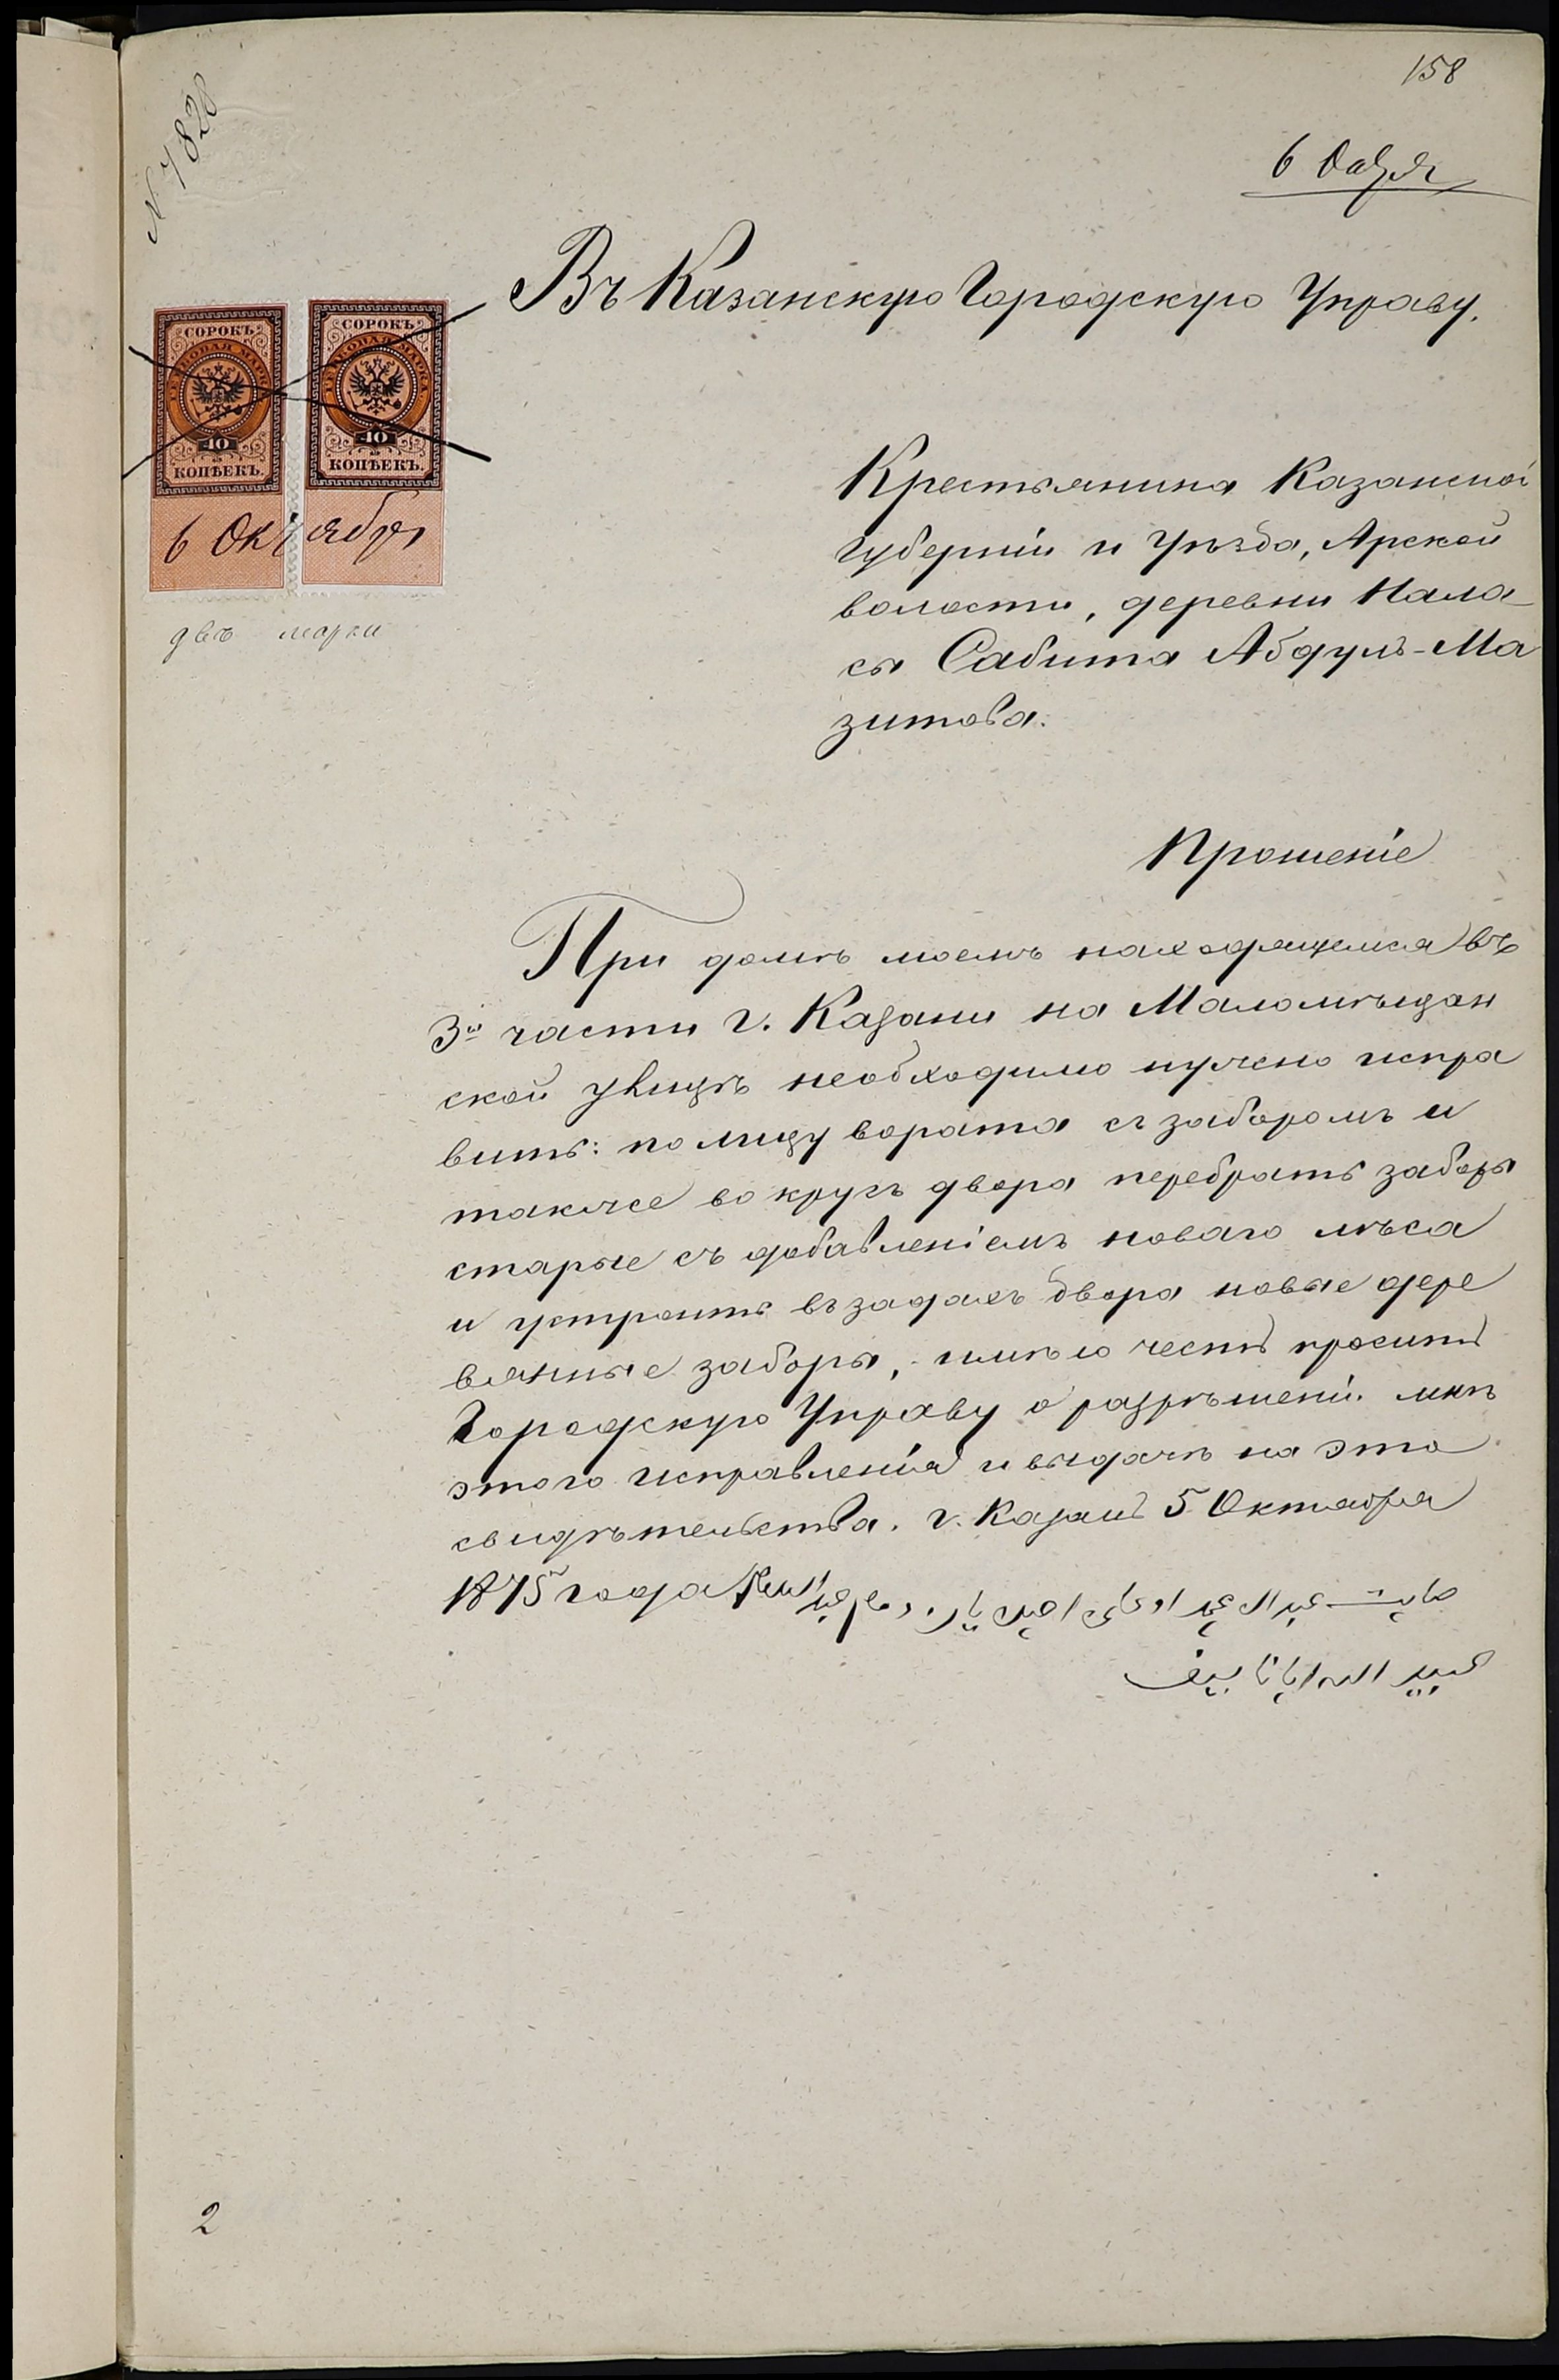 158
№ 7828
6 Октбря
Въ Казанскую Городскую Управу.
СОРОКЪ СОРОКЪ
ГЕРБОВАЯ МАРКА. ГЕРБОВАЯ МАРКА.
40 40
КОПѢЕКЪ. КОПѢЕКЪ.
6 Октября
двѣ марки
Крестьянина Казанской
Губернiи и Уѣзда, Арской
волости, деревни Нала-
сы Сабита Абдулъ-Ма
зитова.
Прошенiе
При домѣ моемъ находящемся въ
3й части г. Казани на Маломѣщан
ской улицѣ необходимо нужно испра
вить: по лицу ворота съ заборомъ и
также во кругъ двора перебрать заборы
старые съ добавленiемъ новаго лѣса
и устроить въ задахъ двора новые дере
вянные заборы, имѣю честь просить
Городскую Управу о разрѣшенi. мнѣ
этого исправленiя и выдачѣ на это
свидѣтельства. г. Казань 5 Октября
1875 года
عبيد الله
2